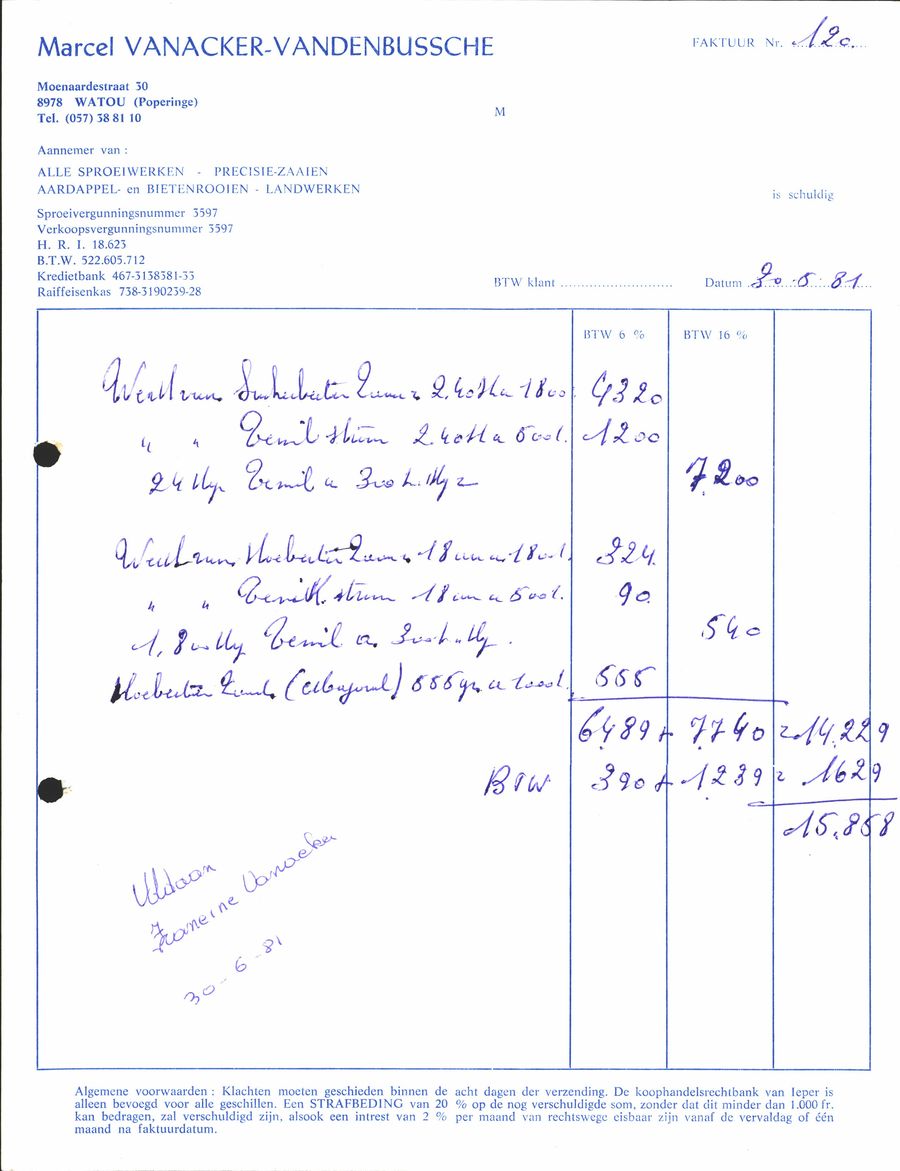 Marcel VANACKER-VANDENBUSSCHE
FAKTUUR Nr. 120.
Moenaardestraat 30
8978 WATOU (Poperinge)
Tel. (057) 38 81 10
M
Aannemer van :
ALLE SPROEIWERKEN - PRECISIE-ZAAIEN
AARDAPPEL- en BIETENROOIEN - LANDWERKEN
is schuldig
Sproeivergunningsnummer 3597
Verkoopsvergunningsnummer 3597
H. R. I. 18.623
B.T.W. 522.605.712
Kredietbank 467-3138381-33
Raiffeisenkas 738-3190239-28
BTW klant
Datum 30.5.81
BTW 6 % BTW 16 %
Werk van Suikerbieten 2.40Ha a 1800 4320
" " Temik 2.40Ha a 500 1200
24 Kg Temik a 300 7200
Werk van 18 a 1800 324
" " Temik 18 a 500 90
1,800 Kg Temik a 300 540
555 gr a 555
6489 + 7740 = 14.229
BTW 390 + 1239 = 1629
15.858
Voldaan
Francine Vanacker
30-6-81
Algemene voorwaarden : Klachten moeten geschieden binnen de acht dagen der verzending. De koophandelsrechtbank van Ieper is
alleen bevoegd voor alle geschillen. Een STRAFBEDING van 20 % op de nog verschuldigde som, zonder dat dit minder dan 1.000 fr.
kan bedragen, zal verschuldigd zijn, alsook een intrest van 2 % per maand van rechtswege eisbaar zijn vanaf de vervaldag of één
maand na faktuurdatum.